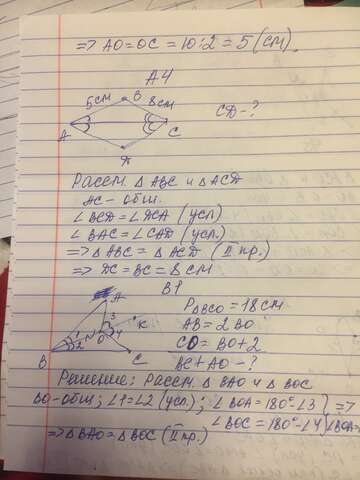 => AO=OC = 10:2 = 5 (см).
A4
5см B 8см
A C
CD-?
D
Рассм. △ ABC и △ ACD
AC - общ.
∠ BCD = ∠ DCA (усл)
∠ BAC = ∠ CAD (усл.)
=> △ ABC = △ ACD (II пр.)
=> DC = BC = 8 см
B1
A
3
O 4 K
1
2
B C
P△BCO = 18 см
AB = 2 BO
CO = BO + 2
BC + AO - ?
Решение: Рассм. △ BAO и △ BOC
BO - общ; ∠1 = ∠2 (усл.); ∠ BOA = 180° - ∠3 } =>
∠ BOC = 180° - ∠4
=> △ BAO = △ BOC (II пр.)